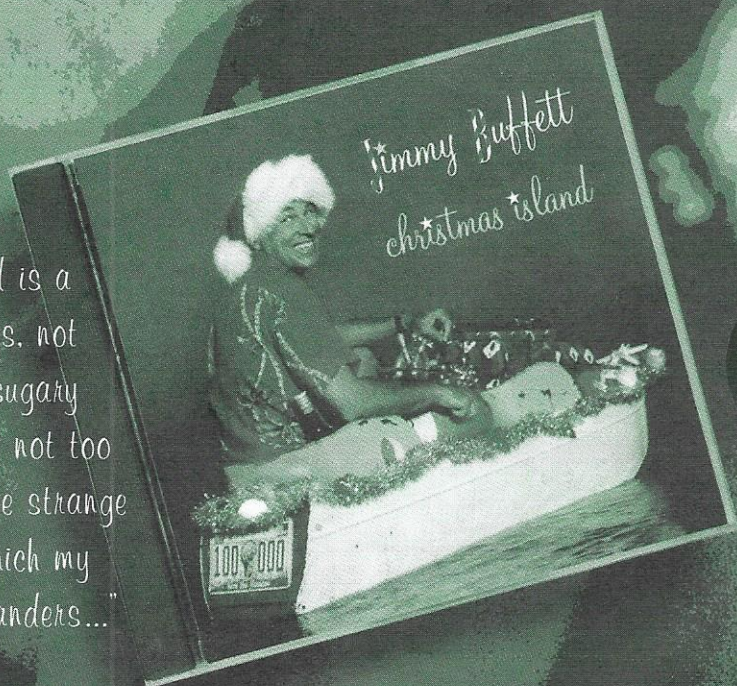 Jimmy Buffett
christmas island
l is a
s, not
sugary
not too
e strange
ich my
anders..."
100 000